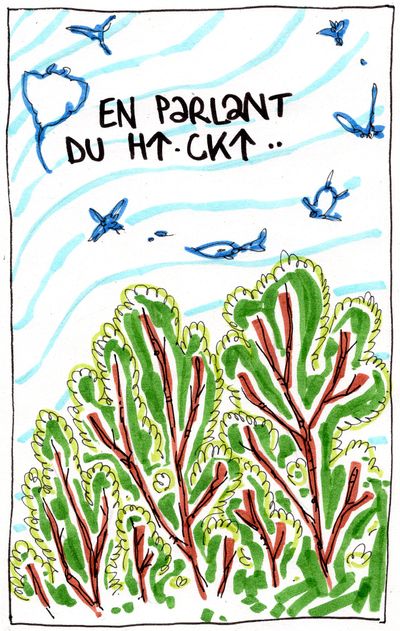 EN PaRLaNT
DU H↑.CK↑..